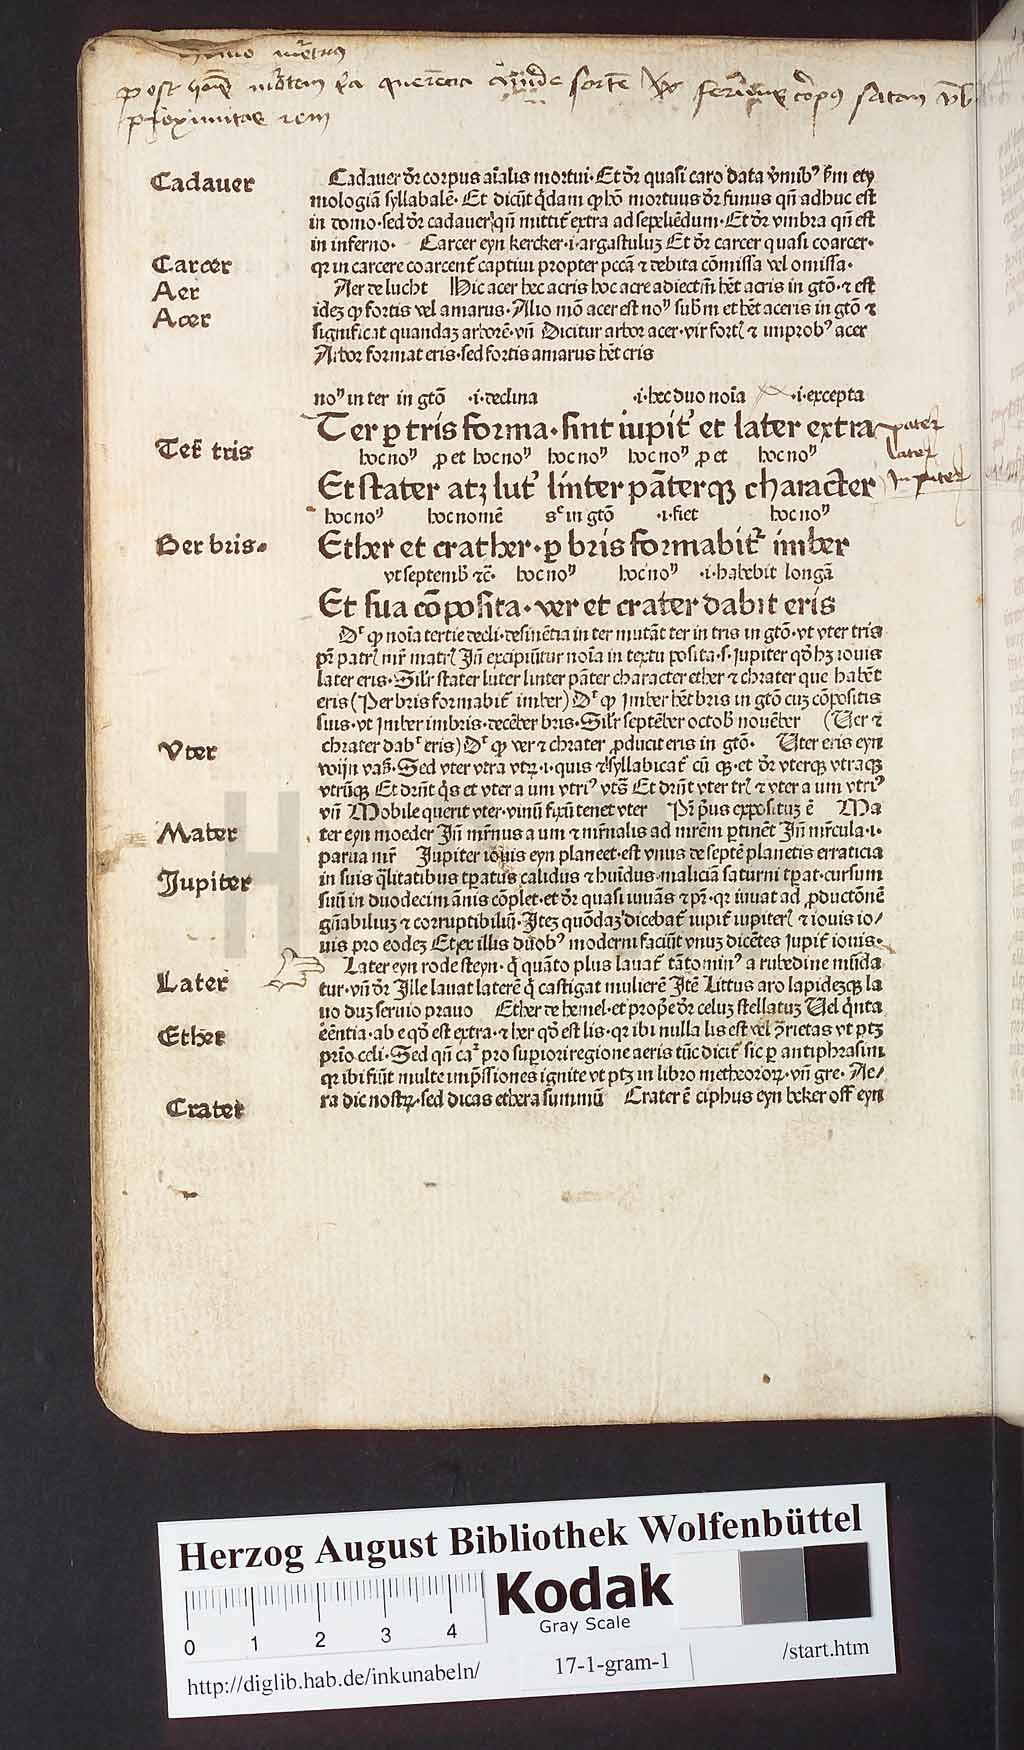 post mortem querencia sortem corpus satan
proximitas rem
Cadauer
Cadauer dr̄ corpus aīalis mortui· Et dr̄ quasi caro data v̓mibꝰ ẜm ety
mologiā syllabalē· Et dicūt q̄dam ꝙ hō mortuus dr̄ funus qn̄ adhuc est
in domo· sed dr̄ cadauer qn̄ mittit̄ extra ad sepeliēdum· Et dr̄ vmbra qn̄ est
in inferno· Carcer eyn kercker·i·argastuluʒ Et dr̄ carcer quasi coarcer·
Carcer
qꝛ in carcere coarcent̄ captiui propter pccā ⁊ debita cōmissa vel omissa·
Aer
Aer de lucht Hic acer hec acris hoc acre adiectiū hēt acris in gtō·⁊ est
Acer
ideʒ ꝙ fortis vel amarus· Alio mō acer est noᷠ sub̄m et hēt aceris in gtō ⁊
significat quandaʒ arborē· vn̄ Dicitur arbor acer· vir fortꝭ ⁊ improbꝰ acer
Arbor format eris· sed fortis amarus hēt cris
noᷠ in ter in gtō ·i·declina ·i·hec duo noīa ·i·excepta
Ter ꝑ tris forma· sint iupit̓ et later extra
pater
later
Jupiter
Ter tris
hoc noᷠ ꝓ et hoc noᷠ hoc noᷠ hoc noᷠ ꝓ et hoc noᷠ
Et stater atꝫ lut̓ linter pāterqꝫ character
hoc noᷠ hoc nomē sᶜ in gtō ·i·fiet hoc noᷠ
Ber bris·
Ether et crather· ꝑ bris formabit̓ imber
vt septemb̄ ⁊c̄· hoc noᷠ hoc noᷠ ·i·habebit longā
Et sua cōposita· ver et crater dabit eris
Dʳ ꝙ noīa tertie decli· desinētia in ter mutāt ter in tris in gtō· vt vter tris
pr̄ patrꝭ mr̄ matrꝭ Jn̄ excipiūtur noīa in textu posita·s·Jupiter qd̄ hʒ iouis
later eris· Silr̄ stater luter linter pāter character ether ⁊ chrater que habēt
eris (Per bris formabit̄ imber) Dʳ ꝙ Jmber hēt bris in gtō cuʒ cōpositis
suis· vt Jmber imbris· decēber bris· Silr̄ septēber octob̄ nouēber (Uer ⁊
Vter
chrater dabʳ eris) Dʳ ꝙ ver ⁊ chrater ꝓducit eris in gtō· Uter eris eyn
woijn vaß· Sed vter vtra vtꝝ·i·quis ⁊ syllabicat̄ cū qꝫ· et dr̄ vterqꝫ vtraqꝫ
vtrūqꝫ Et dr̄nt q̄s et vter a um vtriꝰ vtꝭ Et dr̄nt vter trꝭ ⁊ vter a um vtriꝰ
vn̄ Mobile querit vter· vinū fixū tenet vter Pr̄ p̄us expositus ē Ma
Mater
ter eyn moeder Jn̄ mr̄nus a um ⁊ mr̄nalis ad mrēm ꝑtinēt Jn̄ mr̄cula·i·
parua mr̄ Jupiter iouis eyn planeet· est vnus de septē planetis erraticia
Jupiter
in suis q̄litatibus tꝑatus calidus ⁊ hūidus· maliciā saturni tꝑat· cursum
suū in duodecim ānis cōplet· et dr̄ quasi iuuās ⁊ pr̄· qꝛ iuuat ad ꝓductōnē
gn̄abiliuʒ ⁊ corruptibiliū· Jteʒ quōdaʒ dicebat̄ iupit̄ iupiterꝭ ⁊ iouis io/
uis pro eodeʒ Et ex illis duobꝰ moderni faciūt vnuʒ dicētes Jupit̄ iouis·
Later eyn rode steyn· q̄ quāto plus lauat̄ tāto minꝰ a rubedine mūda
Later
tur· vn̄ dr̄ Jlle lauat laterē q̄ castigat mulierē Jtē Littus aro lapidesqꝫ la
uo duʒ seruio prauo Ether de hemel· et prop̄e dr̄ celuʒ stellatuʒ Uel q̄nta
Ether
eēntia· ab e qd̄ est extra·⁊ her qd̄ est lis· qꝛ ibi nulla lis est vel ꝯ̄rietas vt ptʒ
prīo celi· Sed qn̄ caʳ pro supīori regione aeris tūc dicit̄ sic ꝑ antiphrasim
qꝛ ibi fiūt multe imp̄ssiones ignite vt ptʒ in libro metheoroꝝ· vn̄ gre· Ae/
ra dic nostrꝝ· sed dicas ethera summū Crater ē ciphus eyn beker off eyn
Crater
Herzog August Bibliothek Wolfenbüttel
Kodak
Gray Scale
0 1 2 3 4
http://diglib.hab.de/inkunabeln/ 17-1-gram-1 /start.htm